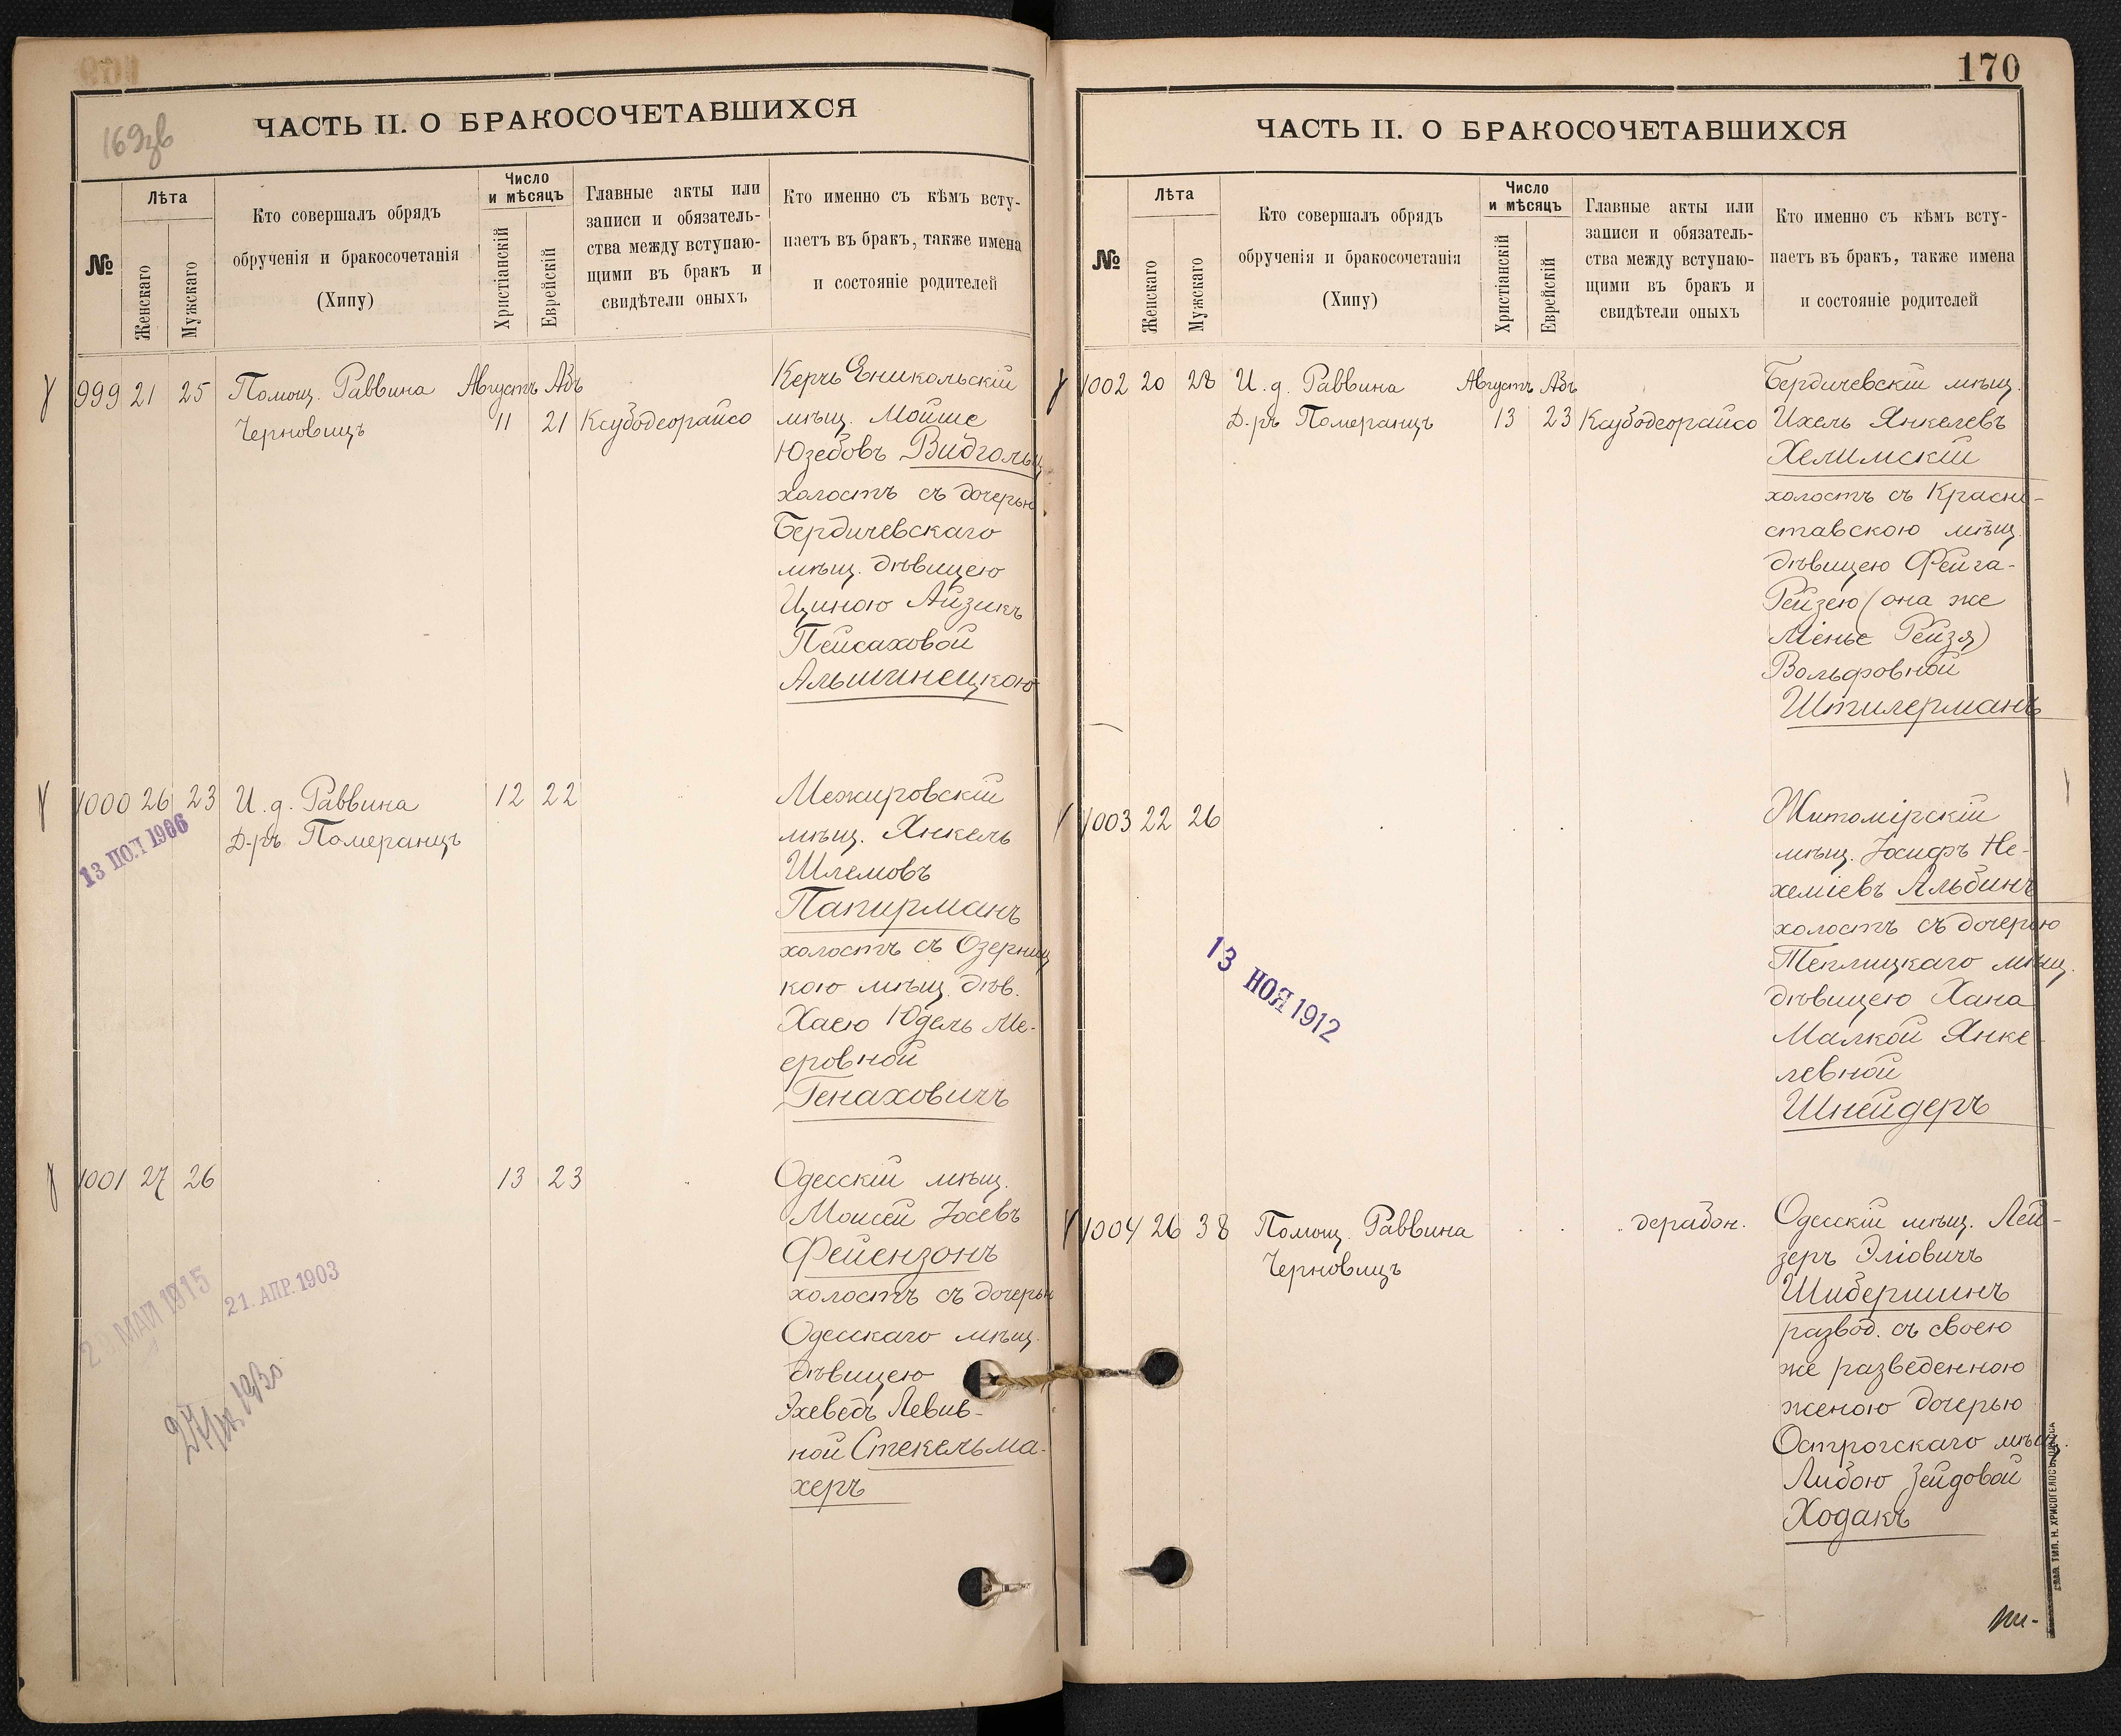 169зв
ЧАСТЬ II. О БРАКОСОЧЕТАВШИХСЯ
№
Лѣта
Женскаго
Мужскаго
Кто совершалъ обрядъ
обрученія и бракосочетанія
(Хипу)
Число
и мѣсяцъ
Христіанскій
Еврейскій
Главные акты или
записи и обязатель-
ства между вступаю-
щими въ бракъ и
свидѣтели оныхъ
Кто именно съ кѣмъ всту-
паетъ въ бракъ, также имена
и состояніе родителей
999 21 25 Помощ. Раввина Августъ Абъ
Черновицъ 11 21 Ксубодеорайсо
Керчь Еникольскій
мѣщ. Мойше
Юзебовъ Видгольц
холостъ съ дочерью
Бердичевскаго
мѣщ. дѣвицею
Циною Айзикъ
Пейсаховой
Альшинецкою
1000 26 23 И. д. Раввина 12 22
Д-ръ Померанцъ
13 ПОЛ 1906
Межировскій
мѣщ. Янкель
Шлемовъ
Папирманъ
холостъ съ Озерниц
кою мѣщ. дѣв.
Хаею Юдель Ме-
еровной
Генаховичъ
1001 27 26 13 23
Одесскій мѣщ.
Моисей Іосевъ
Фейензонъ
холостъ съ дочерью
Одесскаго мѣщ.
дѣвицею
Эхеведъ Левив-
ной Стекельма-
херъ
МАЙ 1915
21. АПР. 1903
170
ЧАСТЬ II. О БРАКОСОЧЕТАВШИХСЯ
№
Лѣта
Женскаго
Мужскаго
Кто совершалъ обрядъ
обрученія и бракосочетанія
(Хипу)
Число
и мѣсяцъ
Христіанскій
Еврейскій
Главные акты или
записи и обязатель-
ства между вступаю-
щими въ бракъ и
свидѣтели оныхъ
Кто именно съ кѣмъ всту-
паетъ въ бракъ, также имена
и состояніе родителей
1002 20 28 И. д. Раввина Августъ Абъ
Д-ръ Померанцъ 13 23 Ксубодеорайсо
Бердичевскій мѣщ.
Ихель Янкелевъ
Хелимскій
холостъ съ Красно-
ставскою мѣщ.
дѣвицею Фейга-
Рейзею (она же
Менье Рейзя)
Вольфовной
Штилерманъ
1003 22 26
Житомірскій
мѣщ. Іосифъ Не-
хеміевъ Альбинъ
холостъ съ дочерью
Теплицкаго мѣщ.
дѣвицею Хана
Малкой Янке-
левной
Шнейдеръ
13 НОЯ 1912
1004 26 38 Помощ. Раввина дерабон.
Черновицъ
Одесскій мѣщ. Лей-
зеръ Эліовичъ
Шибершинъ
развод. съ своею
же разведенною
женою дочерью
Острогскаго мѣщ.
Либою Зейдовой
Ходакъ
ТИП. Н. ХРИСОГЕЛОСЪ, ОДЕССА